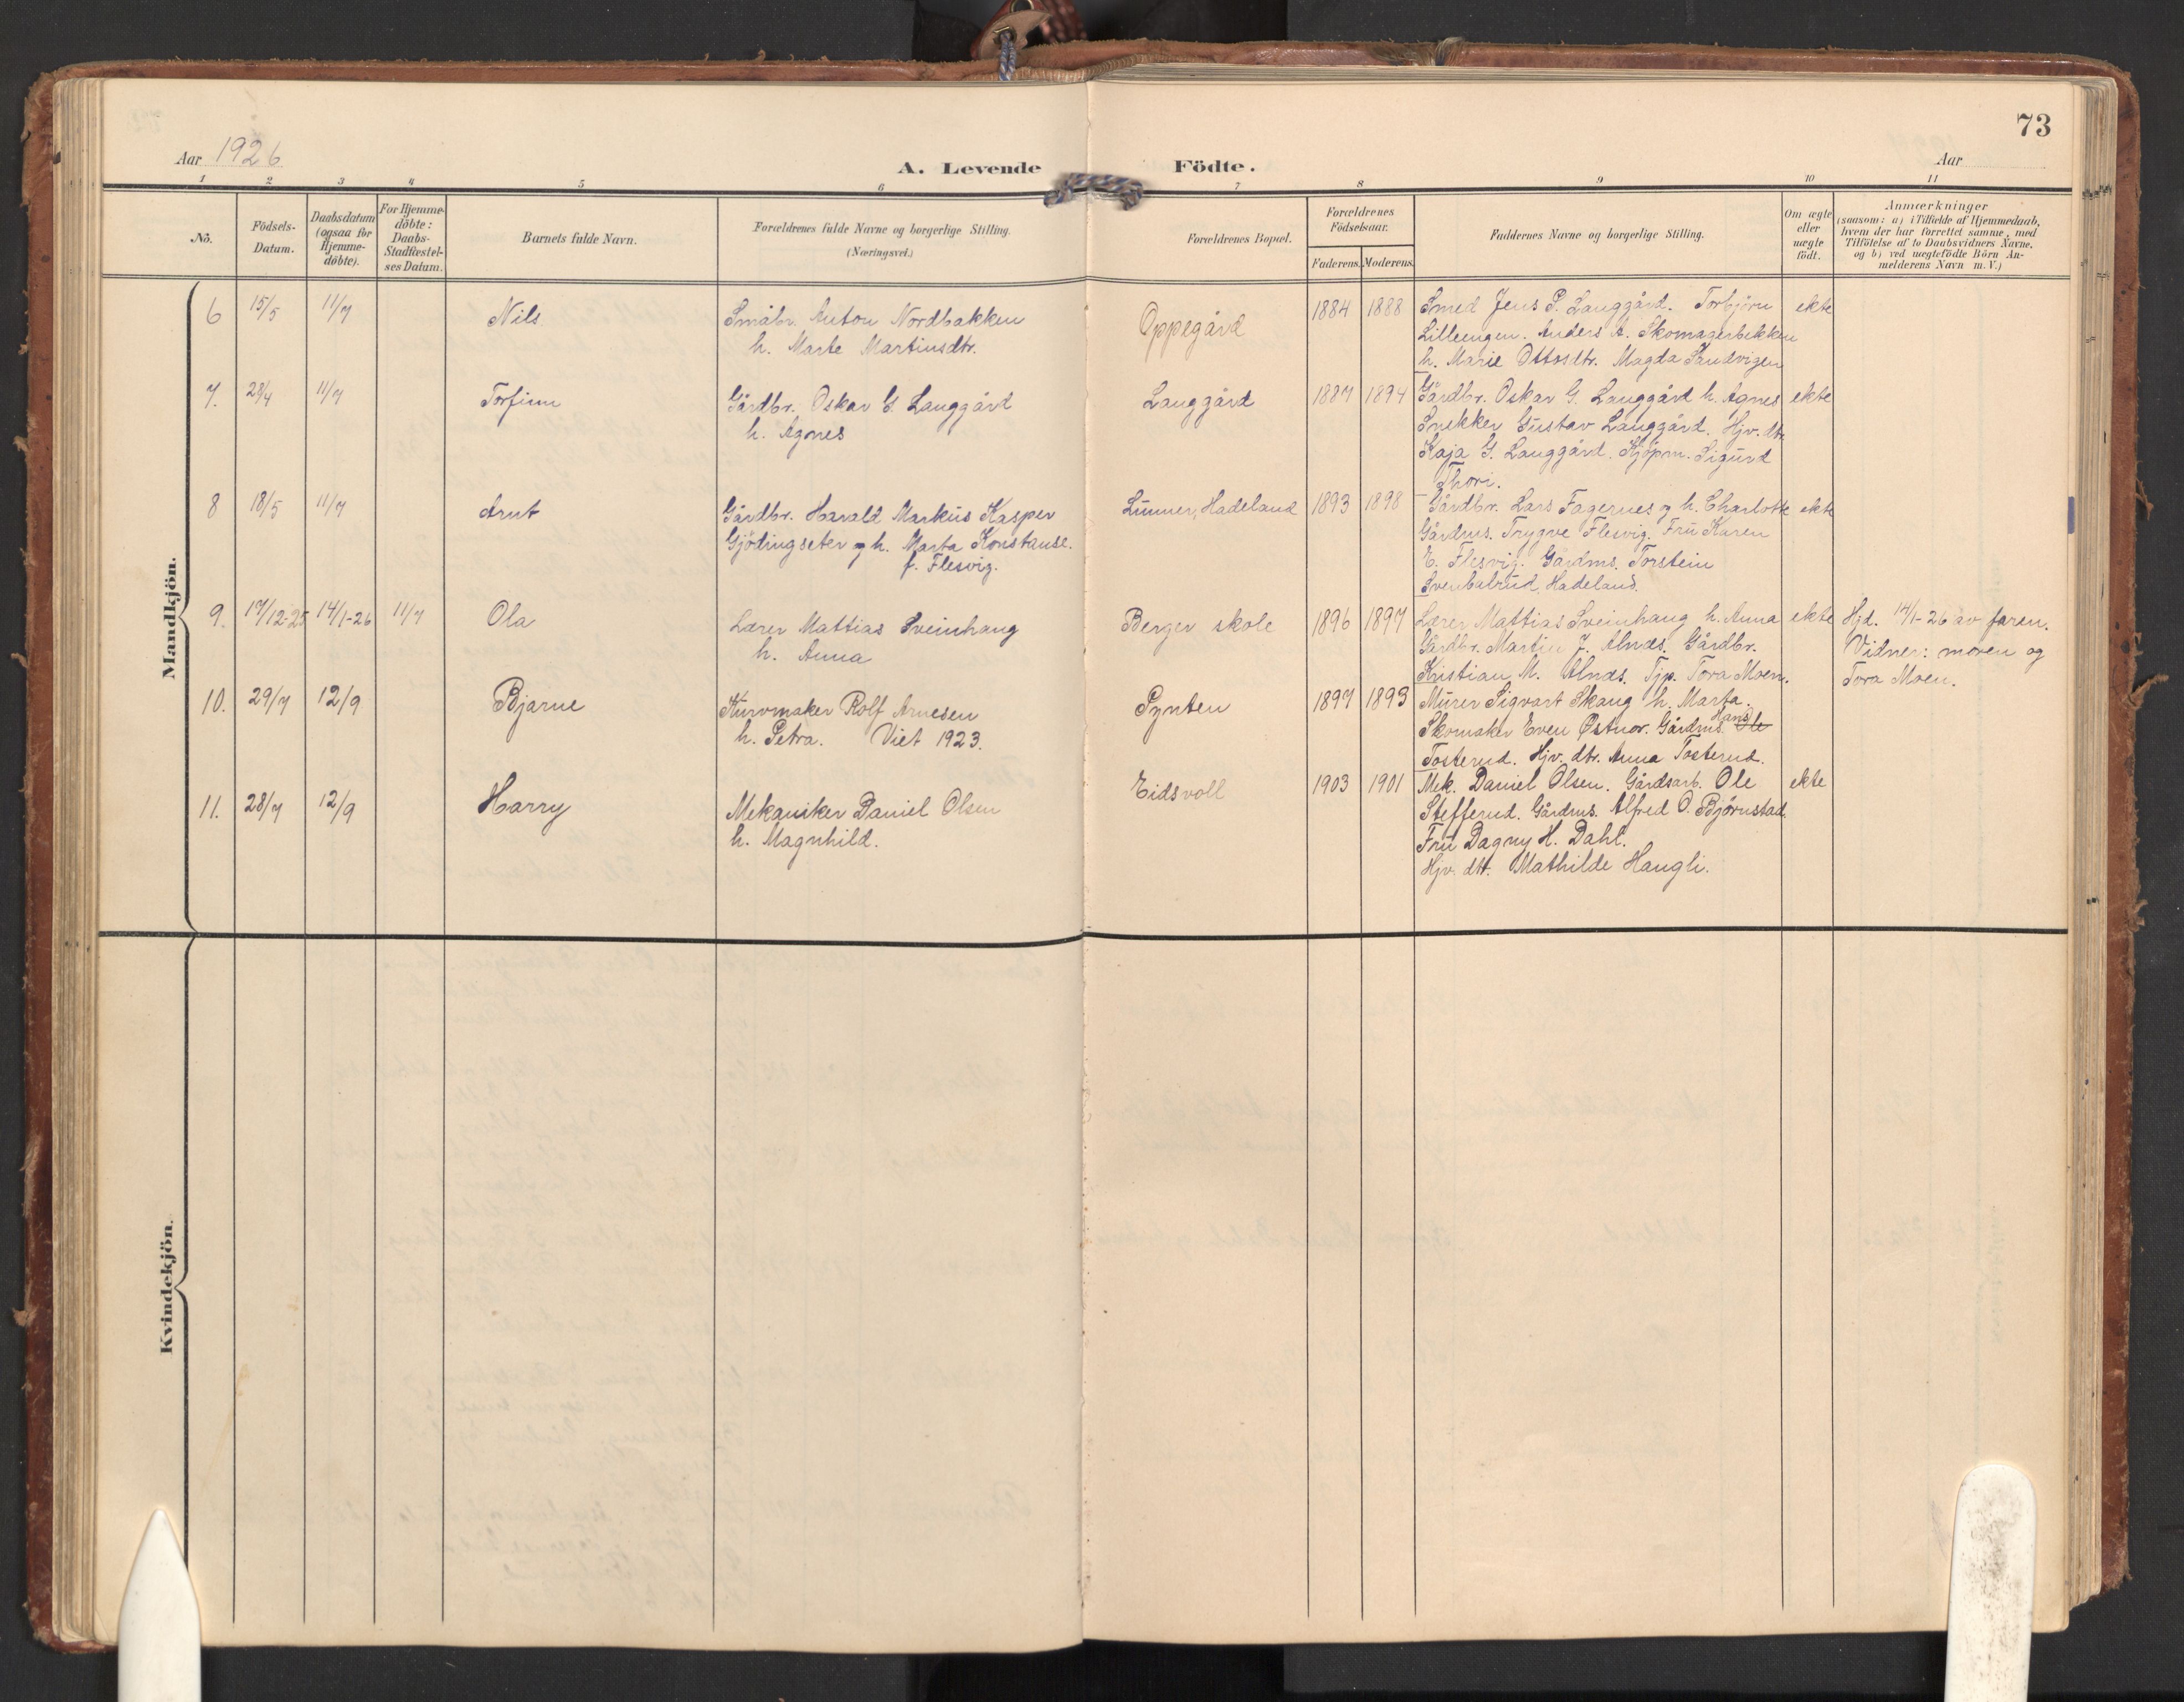 73
Aar 1926
A. Levende Födte.
Aar
1 2 3 4 5 6 7 8 9 10 11
No.
Födsels-
Datum.
Daabsdatum
(ogsaa for
Hjemme-
döbte).
For Hjemme-
döbte:
Daabs-
Stadfæstel-
ses Datum.
Barnets fulde Navn.
Forældrenes fulde Navne og borgerlige Stilling.
(Næringsvei.)
Forældrenes Bopæl.
Forældrenes
Födselsaar.
Faderens. Moderens.
Faddernes Navne og borgerlige Stilling.
Om ægte
eller
uægte
födt.
Anmærkninger
(saasom: a) i Tilfælde af Hjemmedaab,
hvem der har forrettet samme, med
Tilföielse af to Daabsvidners Navne,
og b) ved uægtefödte Börn An-
melderens Navn m. V.)
Mandkjön.
6 15/5 11/7 Nils
Småbr. Anton Nordbakken
h. Marte Martinsdtr.
Oppegård 1884 1888
Smed Jens P. Langgård. Torbjörn
Lilleengen. Anders A. Skomagerbekken
h. Marie Ottosdtr. Magda Sandvigen
ekte
7. 28/4 11/7 Torfinn
Gårdbr. Oskar G. Langgård
h. Agnes
Langgård 1887 1894
Gårdbr. Oskar G. Langgård h. Agnes
Snekker Gustav Langgård. Hjv. dtr.
Kaja G. Langgård. Kjöpm. Sigurd
Thori.
ekte
8 18/5 11/7 Arnt
Gårdbr. Harald Markus Kasper
Gjödingseter og h. Marta Konstanse.
f. Flesvig.
Lunner, Hadeland 1893 1898
Gårdbr. Lars Fagernes og h. Charlotte
Gårdms. Trygve Flesvig. Fru Karen
E. Flesvig. Gårdms. Torstein
Svenbalrud, Hadeland.
ekte
9. 17/12-25 14/1-26 11/7 Ola
Lærer Mattias Sveinhaug
h. Anna
Berger skole 1896 1897
Lærer Mattias Sveinhaug h. Anna
Gårdbr. Martin J. Alnæs. Gårdbr.
Kristian M. Alnæs. Tjp. Tora Moen.
ekte
Hjd. 14/1-26 av faren.
Vidner: moren og
Tora Moen.
10. 29/7 12/9 Bjarne
Kurvmaker Rolf Arnesen
h. Petra. Viet 1923.
Synten 1897 1893
Murer Sigvart Skaug h. Marta.
Skomaker Even Østnor. Gårdms. Hans Ole
Tosterud. Hjv. dtr. Anna Tosterud.
11. 28/7 12/9 Harry
Mekaniker Daniel Olsen
h. Magnhild.
Eidsvoll 1903 1901
Mek. Daniel Olsen. Gårdsarb. Ole
Stefferud. Gårdms. Alfred O. Björnstad.
Fru Dagny H. Dahl.
Hjv. dtr. Mathilde Haugli.
ekte
Kvindekjön.